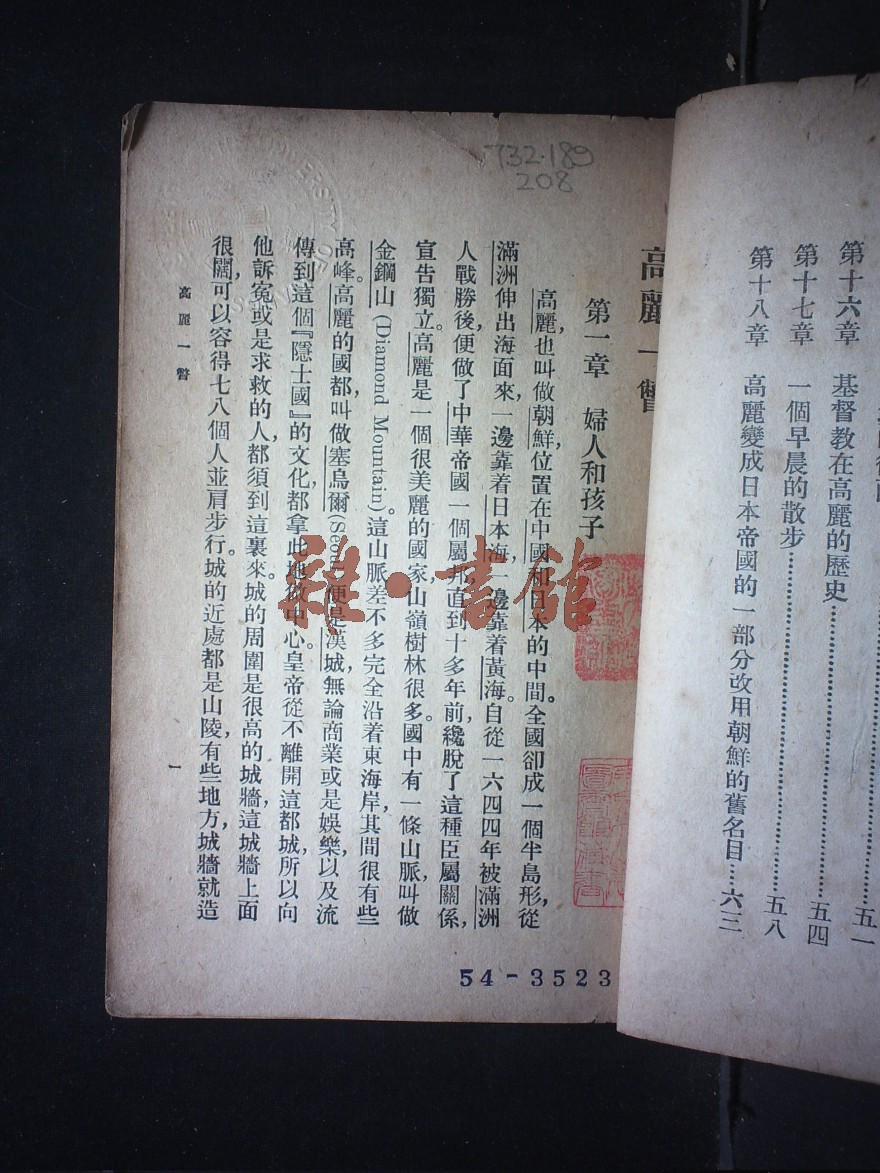 第十六章 基督教在高麗的歷史……五一
第十七章 一個早晨的散步……五四
第十八章 高麗變成日本帝國的一部分改用朝鮮的舊名目……五八
六三
732.189
208
高麗一瞥
第一章 婦人和孩子
高麗,也叫做朝鮮,位置在中國和日本的中間。全國卻成一個半島形,從
滿洲伸出海面來,一邊靠着日本海,一邊靠着黃海。自從一六四四年被滿洲
人戰勝後,便做了中華帝國一個屬邦,直到十多年前,纔脫了這種臣屬關係,
宣告獨立。高麗是一個很美麗的國家,山嶺樹林很多。國中有一條山脈,叫做
金鋼山(Diamond Mountain)。這山脈差不多完全沿着東海岸,其間很有些
高峰。高麗的國都,叫做塞烏爾(Seoul)便是漢城,無論商業或是娛樂,以及流
傳到這個『隱士國』的文化,都拿此地做中心。皇帝從不離開這都城,所以向
他訴冤或是求救的人,都須到這裏來。城的周圍是很高的城牆,這城牆上面
很闊,可以容得七八個人並肩步行。城的近處都是山陵,有些地方,城牆就造
高麗一瞥
一
54-3523
雜·書館